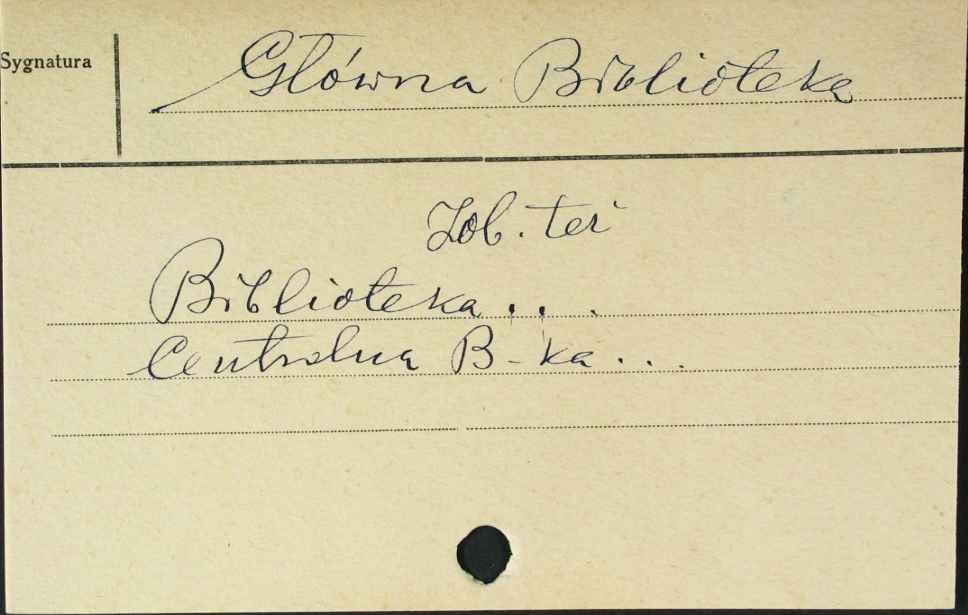 Sygnatura
Główna Biblioteka
Zob. też
Biblioteka . . .
Centralna B-ka . . .